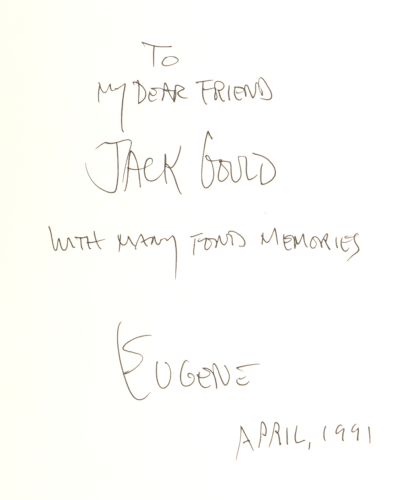 To
My DEAR FRIEND
JACK GOULD
WITH MANY FOND MEMORIES
EUGENE
APRIL, 1991